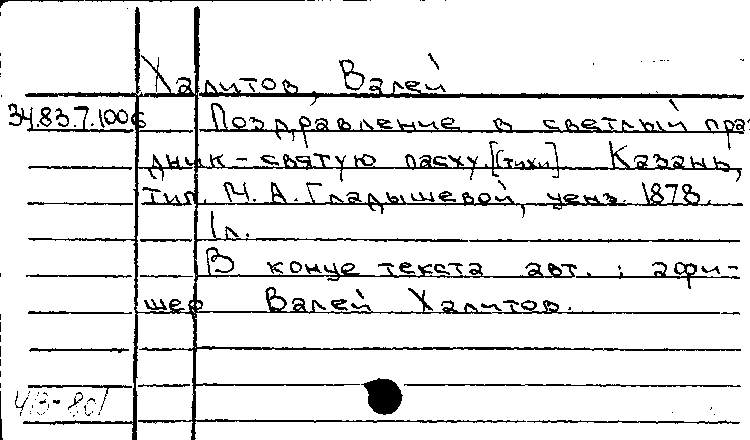 Халитов, Валей
34.83.7.1006 Поздравление в светлый праз
дник-святую пасху. [Стихи] Казань,
тип. М. А. Гладышевой, ценз. 1878.
1 л.
В конце текста авт.: афи-
шер Валей Халитов.
413-801